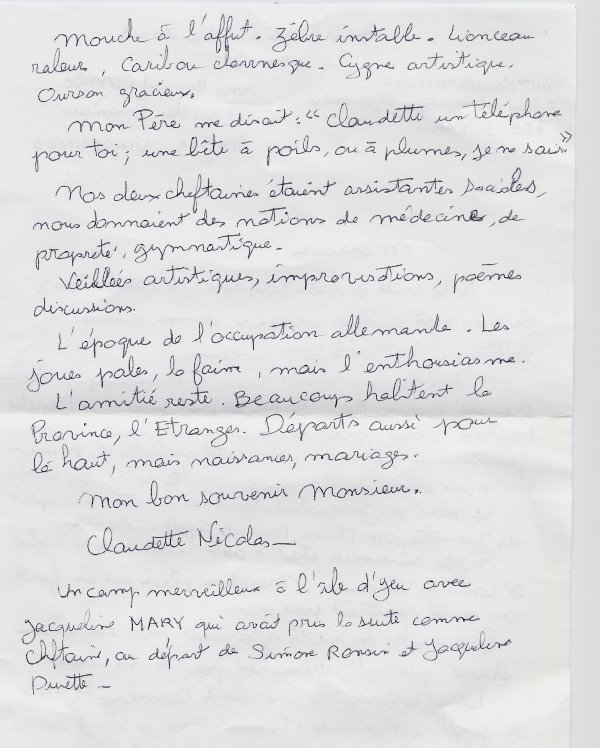 Mouche à l'affut. Zèbre instable. Lionceau
raleur, Caribou clownesque. Cygne artistique.
Ourson gracieux.
Mon Père me disait : "Claudette un téléphone
pour toi; une bête à poils, ou à plumes, je ne sais"
Nos deux cheftaines étaient assistantes sociales,
nous donnaient des notions de médecine, de
propreté, gymnastique.
Veillées artistiques, improvisations, poèmes
discussions.
L'époque de l'occupation allemande. Les
joues pales, la faim, mais l'enthousiasme.
L'amitié reste. Beaucoup habitent la
Province, l'Etranger. Départs aussi pour
là haut, mais naissances, mariages.
Mon bon souvenir Monsieur.
Claudette Nicolas
Un camp merveilleux à l'île d'yeu avec
Jacqueline MARY qui avait pris la suite comme
Cheftaine, au départ de Simone Ronsin et Jacqueline